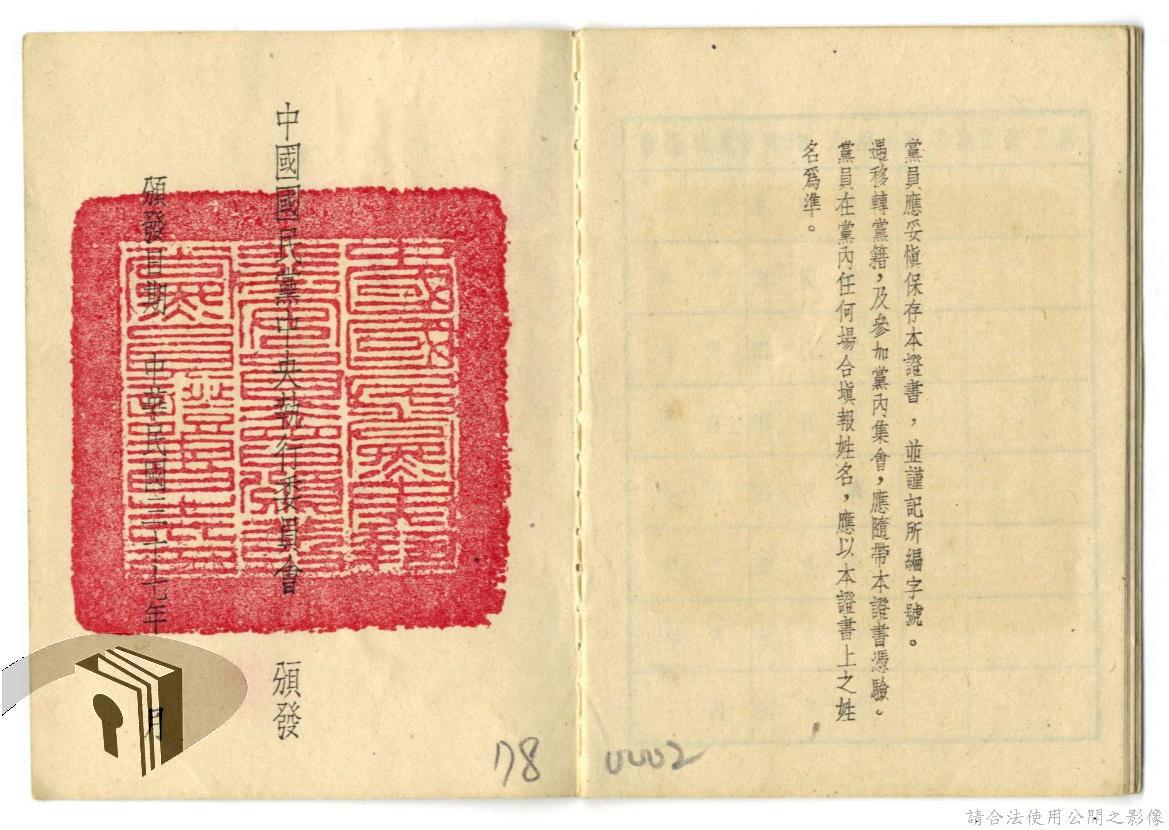 黨員應妥愼保存本證書，並謹記所編字號。
遇移轉黨籍，及參加黨內集會，應隨帶本證書憑驗。
黨員在黨內任何場合塡報姓名，應以本證書上之姓
名爲準。
中國國民黨中央執行委員會　頒發
頒發日期　中華民國三十七年　月
178
0002
請合法使用公開之影像